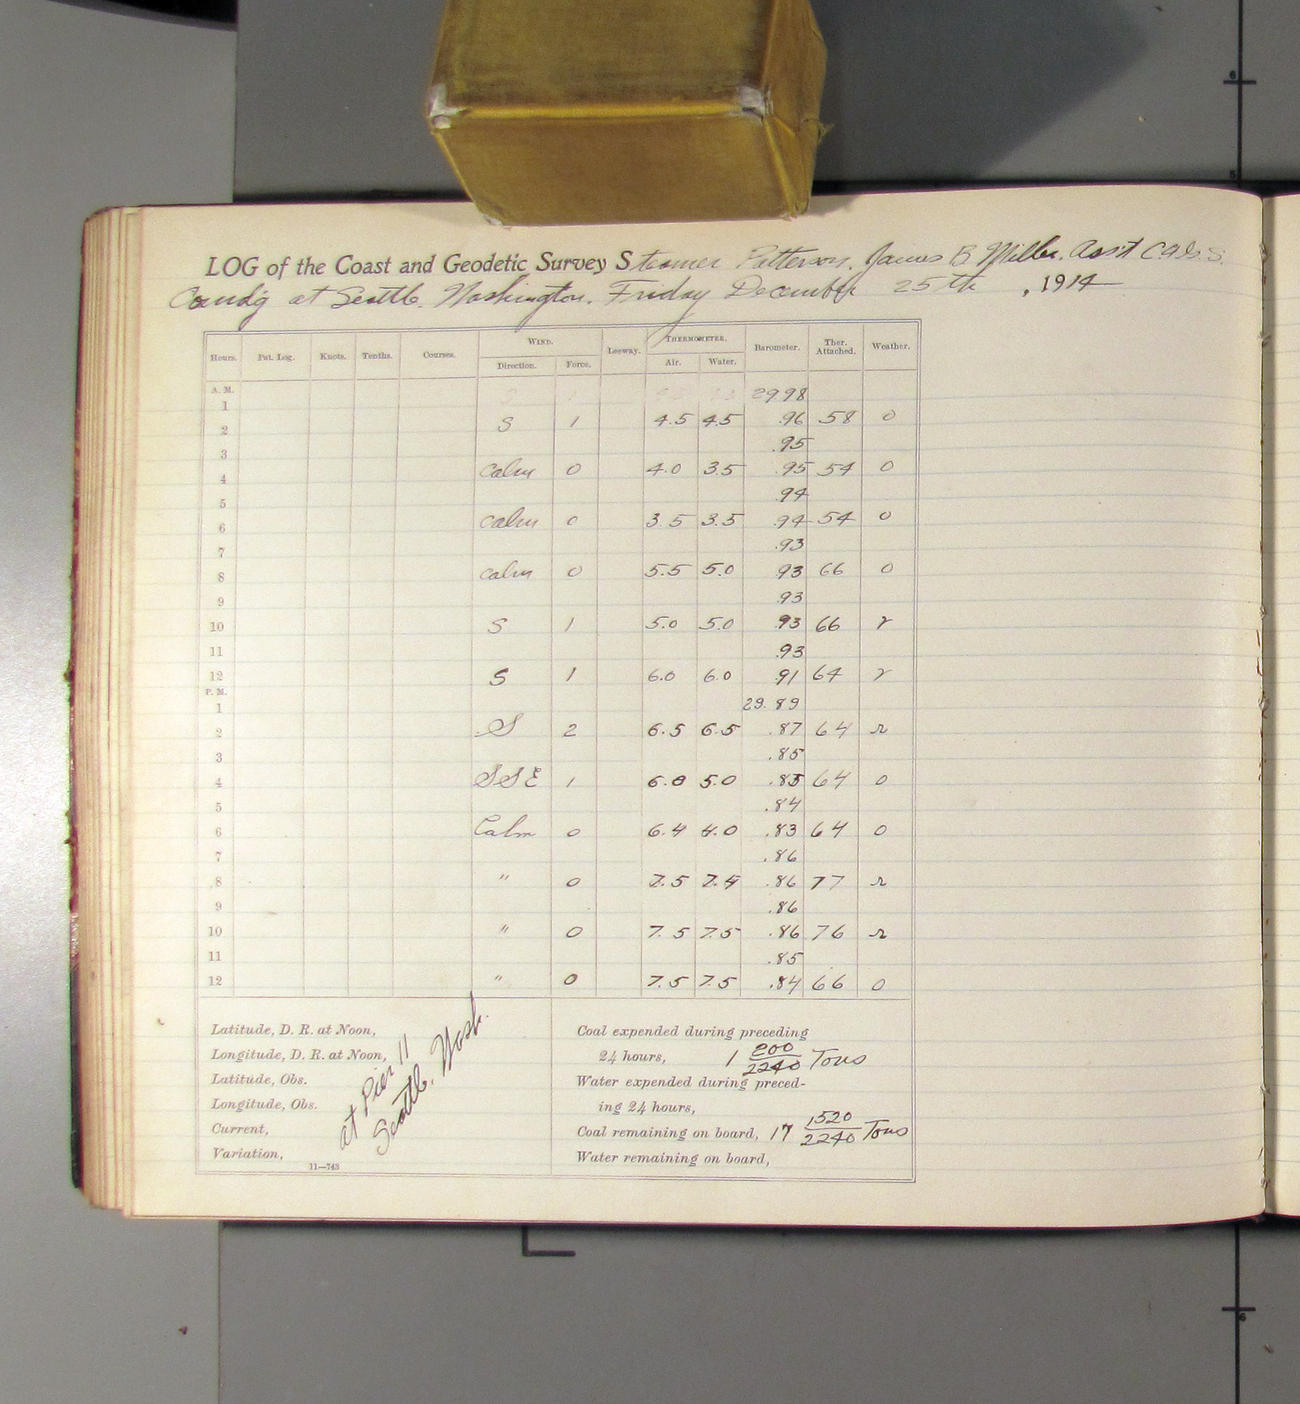 LOG of the Coast and Geodetic Survey Steamer Patterson, James B Miller, Ass't C & G.S.
Comd'g at Seattle, Washington. Friday December 25th, 1914
Hours. Pat. Log. Knots. Tenths. Courses. WIND. Leeway. THERMOMETER. Barometer. Ther. Attached. Weather.
Direction. Force. Air. Water.
A. M.
1 29.98
2 S 1 4.5 4.5 .96 58 o
3 .95
4 calm 0 4.0 3.5 .95 54 o
5 .94
6 calm 0 3.5 3.5 .94 54 o
7 .93
8 calm 0 5.5 5.0 .93 66 o
9 .93
10 S 1 5.0 5.0 .93 66 r
11 .93
12 S 1 6.0 6.0 .91 64 r
P. M.
1 29.89
2 S 2 6.5 6.5 .87 64 r
3 .85
4 SSE 1 6.0 5.0 .85 64 o
5 .84
6 Calm 0 6.4 4.0 .83 64 o
7 .86
8 " 0 7.5 7.4 .86 77 r
9 .86
10 " 0 7.5 7.5 .86 76 r
11 .85
12 " 0 7.5 7.5 .84 66 o
Latitude, D. R. at Noon,
Longitude, D. R. at Noon,
Latitude, Obs.
Longitude, Obs.
Current,
Variation,
11—743
at Pier 11
Seattle, Wash.
Coal expended during preceding
24 hours, 1 200/2240 Tons
Water expended during preced-
ing 24 hours,
Coal remaining on board, 17 1520/2240 Tons
Water remaining on board,
6
5
6